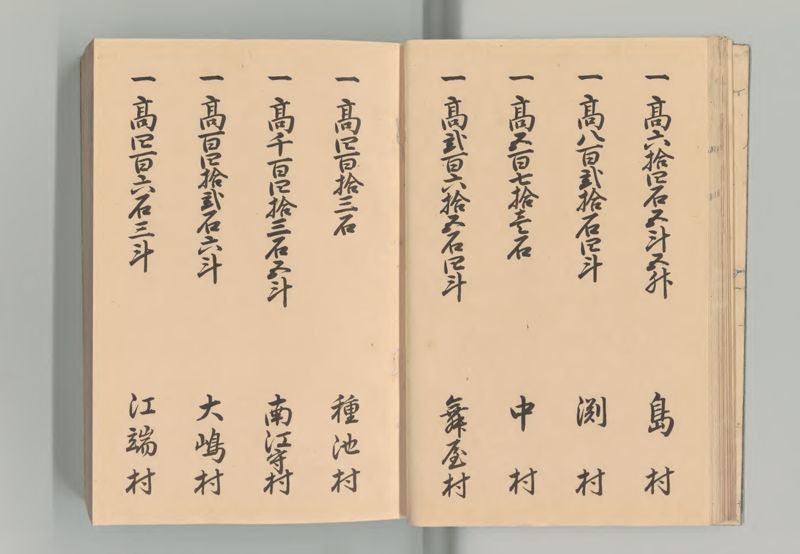 一 高六拾四石五斗五升 島村
一 高八百弐拾石四斗 渕村
一 高五百七拾壱石 中村
一 高弐百六拾五石四斗 舞屋村
一 高四百拾三石 種池村
一 高千百四拾三石五斗 南江守村
一 高百四拾弐石六斗 大嶋村
一 高四百六石三斗 江端村